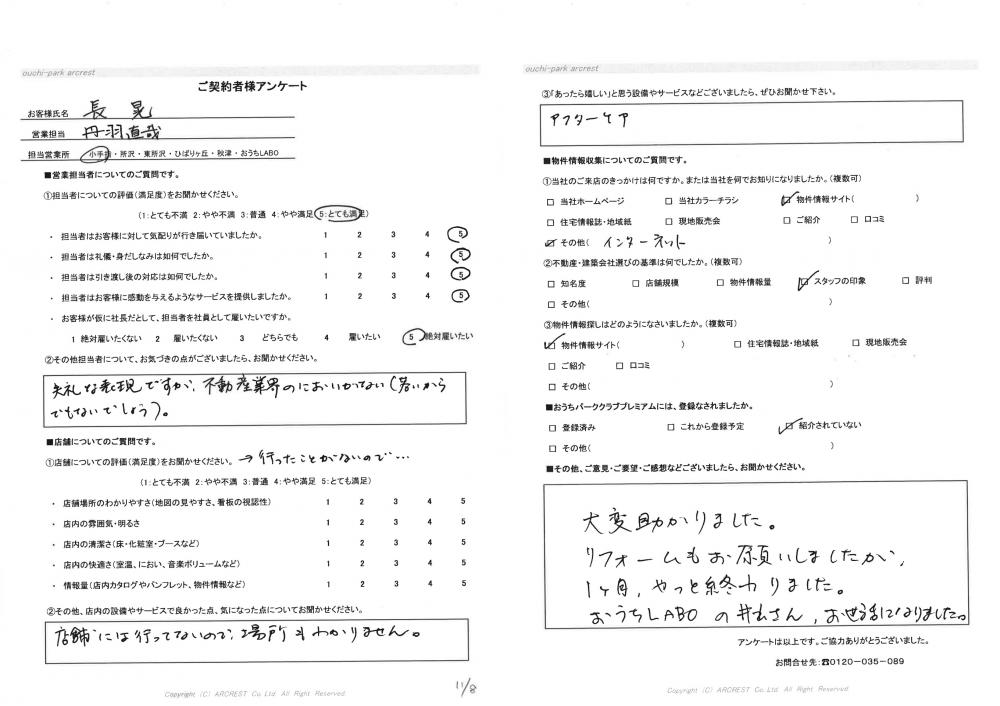 ouchi-park arcrest
ご契約者様アンケート
お客様氏名 長 晃
営業担当 丹羽直哉
担当営業所 小手指・所沢・東所沢・ひばりヶ丘・秋津・おうちLABO
■営業担当者についてのご質問です。
①担当者についての評価(満足度)をお聞かせください。
(1:とても不満 2:やや不満 3:普通 4:やや満足 5:とても満足)
・ 担当者はお客様に対して気配りが行き届いていましたか。 1 2 3 4 5
・ 担当者は礼儀・身だしなみは如何でしたか。 1 2 3 4 5
・ 担当者は引き渡し後の対応は如何でしたか。 1 2 3 4 5
・ 担当者はお客様に感動を与えるようなサービスを提供しましたか。 1 2 3 4 5
・ お客様が仮に社長だとして、担当者を社員として雇いたいですか。
1 絶対雇いたくない 2 雇いたくない 3 どちらでも 4 雇いたい 5 絶対雇いたい
②その他担当者について、お気づきの点がございましたら、お聞かせください。
失礼な表現ですが、不動産業界のにおいがない(若いから
でもないでしょう)。
■店舗についてのご質問です。
①店舗についての評価(満足度)をお聞かせください。 →行ったことがないので…
(1:とても不満 2:やや不満 3:普通 4:やや満足 5:とても満足)
・ 店舗場所のわかりやすさ(地図の見やすさ、看板の視認性) 1 2 3 4 5
・ 店内の雰囲気・明るさ 1 2 3 4 5
・ 店内の清潔さ(床・化粧室・ブースなど) 1 2 3 4 5
・ 店内の快適さ(室温、におい、音楽ボリュームなど) 1 2 3 4 5
・ 情報量(店内カタログやパンフレット、物件情報など) 1 2 3 4 5
②その他、店内の設備やサービスで良かった点、気になった点についてお聞かせください。
店舗には行ってないので、場所もわかりません。
11/8
Copyright (C) ARCREST Co. Ltd. All Right Reserved.
ouchi-park arcrest
③「あったら嬉しい」と思う設備やサービスなどございましたら、ぜひお聞かせ下さい。
アフターケア
■物件情報収集についてのご質問です。
①当社のご来店のきっかけは何ですか。または当社を何でお知りになりましたか。(複数可)
□ 当社ホームページ □ 当社カラーチラシ ☑ 物件情報サイト( )
□ 住宅情報誌・地域紙 □ 現地販売会 □ ご紹介 □ 口コミ
☑ その他( インターネット )
②不動産・建築会社選びの基準は何でしたか。(複数可)
□ 知名度 □ 店舗規模 □ 物件情報量 ☑ スタッフの印象 □ 評判
□ その他( )
③物件情報探しはどのようになさいましたか。(複数可)
☑ 物件情報サイト( ) □ 住宅情報誌・地域紙 □ 現地販売会
□ ご紹介 □ 口コミ
□ その他( )
■おうちパーククラブプレミアムには、登録なされましたか。
□ 登録済み □ これから登録予定 ☑ 紹介されていない
□ その他( )
■その他、ご意見・ご要望・ご感想などございましたら、お聞かせください。
大変助かりました。
リフォームもお願いしましたが、
1ヶ月、やっと終わりました。
おうちLABOの さん、お世話になりました。
アンケートは以上です。ご協力ありがとうございました。
お問合せ先:☎0120-035-089
Copyright (C) ARCREST Co. Ltd. All Right Reserved.